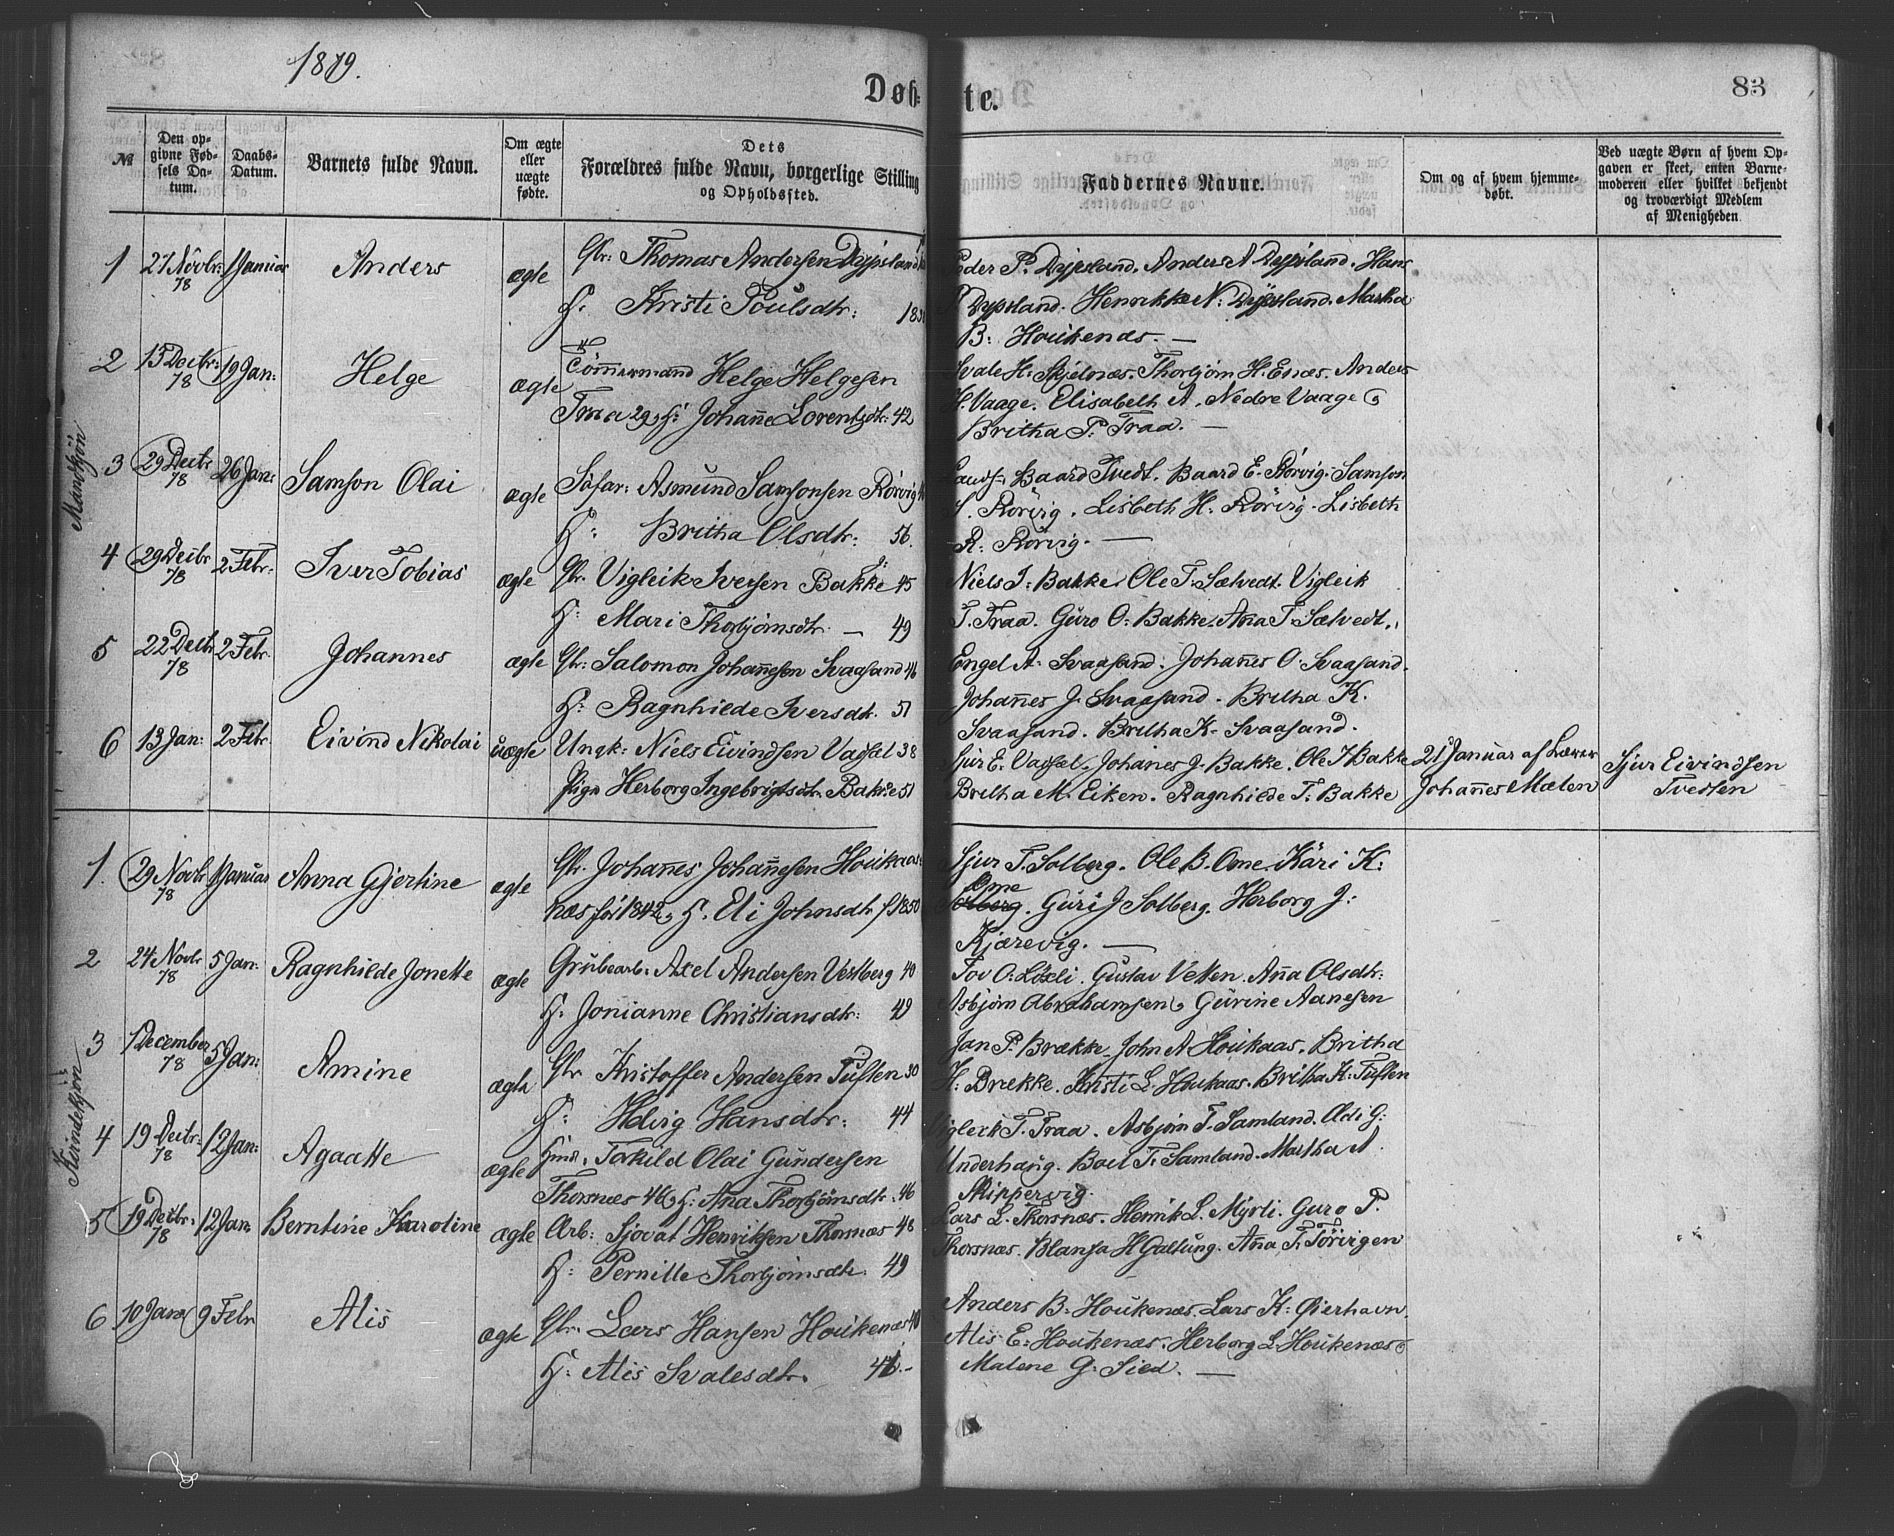 1879.
Døb-
te.
83
№
Den op-
givne Fød-
sels Da-
tum.
Daabs-
Datum.
Barnets fulde Navn.
Om ægte
eller
uægte
fødte.
Dets
Forældres fulde Navn, borgerlige Stilling
og Opholdssted.
Faddernes Navne.
Om og af hvem hjemme-
døbt.
Ved uægte Børn af hvem Op-
gaven er skeet, enten Barne-
moderen eller hvilket bekjendt
og troværdigt Medlem
af Menigheden.
Mandkjön
1 27 Novbr: 78 1 Januar Anders ægte Gbr: Thomas Andersen Dypsland
H: Kristi Poulsdtr:
Peder P. Dypsland. Anders A Dypsland. Hans
P Dypsland. Henrikke N: Dypsland. Martha
B: Houkenæs. —
2 15 Decbr: 78 19 Jan: Helge ægte Tömmermand Helge Helgesen
Traa 29, H: Johanne Lorentsdtr: 42
Svale H: Skjelnæs. Thorbjörn H. Enæs. Anders
H. Vaage. Elisabeth A. Nedre Vaage
Britha P: Traa. —
3 29 Decbr 78 26 Jan: Samson Olai ægte Asmund Samsonsen Rörvig
H: Britha Olsdtr: 56.
Baard Tvedt. Baard E. Rörvig. Samson
S. Rörvig. Lisbeth H: Rörvig. Lisbeth
R: Rörvig. —
4 29 Decbr 78 2 Febr: Iver Tobias ægte Gbr. Vigleik Iversen Bakke 45
H: Mari Thorbjörnsdtr. — 49
Niels I: Bakke. Ole T: Sælvedt. Vigleik
T. Traa. Guro O: Bakke. Anna T. Sælvedt.
5 22 Decbr 78 2 Febr. Johannes ægte Gbr: Salomon Johannesen Svaasand 46
H: Ragnhilde Iversdtr. 51
Engel A: Svaasand. Johannes O: Svaasand.
Johannes J. Svaasand. Britha K.
Svaasand. Britha K. Svaasand.
6 13 Jan: 2 Febr. Eivind Nikolai uægte Ungk: Niels Eivindsen Vassel 38
Pige Herborg Ingebrigtsdtr. Bakke 51
Sjur E. Vassel. Johanes J. Bakke. Ole I Bakke
Britha M. Eiken. Ragnhilde T: Bakke
21 Januar af Lærer
Johannes Mælen
Sjur Eivindsen
Tvedten
Kvindekjön
1. 29 Novbr 78 1 Januar Anna Gjertine ægte Gbr. Johannes Johannesen Houkaas:
næs fö: 1842, H. Eli Johnsdtr f 1850
Sjur T. Solberg. Ole B. Ome. Kari K:
Ome
Solberg. Guri J Solberg. Herborg J:
Kjærevig. —
2 24 Novbr 78 5 Jan: Ragnhilde Jonette ægte Grubearb: Axel Andersen Vestberg 40
H. Jonianne Christiansdtr: 49
Tov O: Gustav Vetten. Anna Olsdtr:
Asbjörn Abrahamsen, Gurine Aanesen
3 1 December 78 5 Jan: Amine ægte Gbr. Kristoffer Andersen Tusten 30
H: Helvig Hansdtr: 44
Jan P. Brække. John A Houkaas. Britha
H: Brække. Kristi L. Houkaas. Britha K. Tusten
4 19 Decbr: 78 12 Jan: Agaatte ægte Huusm. Torkild Olai Gundersen
Thorsnæs 46, H: Ana Thorbjörnsdtr. 46
Vigleik T. Traa. Asbjörn T. Samland. Olai G:
Underhaug. Boel T: Samland. Martha A.
Skippervig.
5 19 Decbr: 78 12 Jan: Berntine Karoline ægte Arb: Sjovat Henriksen Thorsnæs 48
H: Pernille Thorbjörnsdtr. 49
Lars L. Thorsnæs. Henrik L. Myrli. Guro P.
Thorsnæs. Blansa H Galtung. Ana T. Törvigen
6 10 Janr 9 Febr Alis ægte Gbr. Lars Hansen Houkenæs 40
H: Alis Svalesdtr. —
Anders B: Houkenæs. Lars K: Gierhavn.
Alis E: Houkenæs. Herborg L. Houkenæs
Malene G: Sied. —